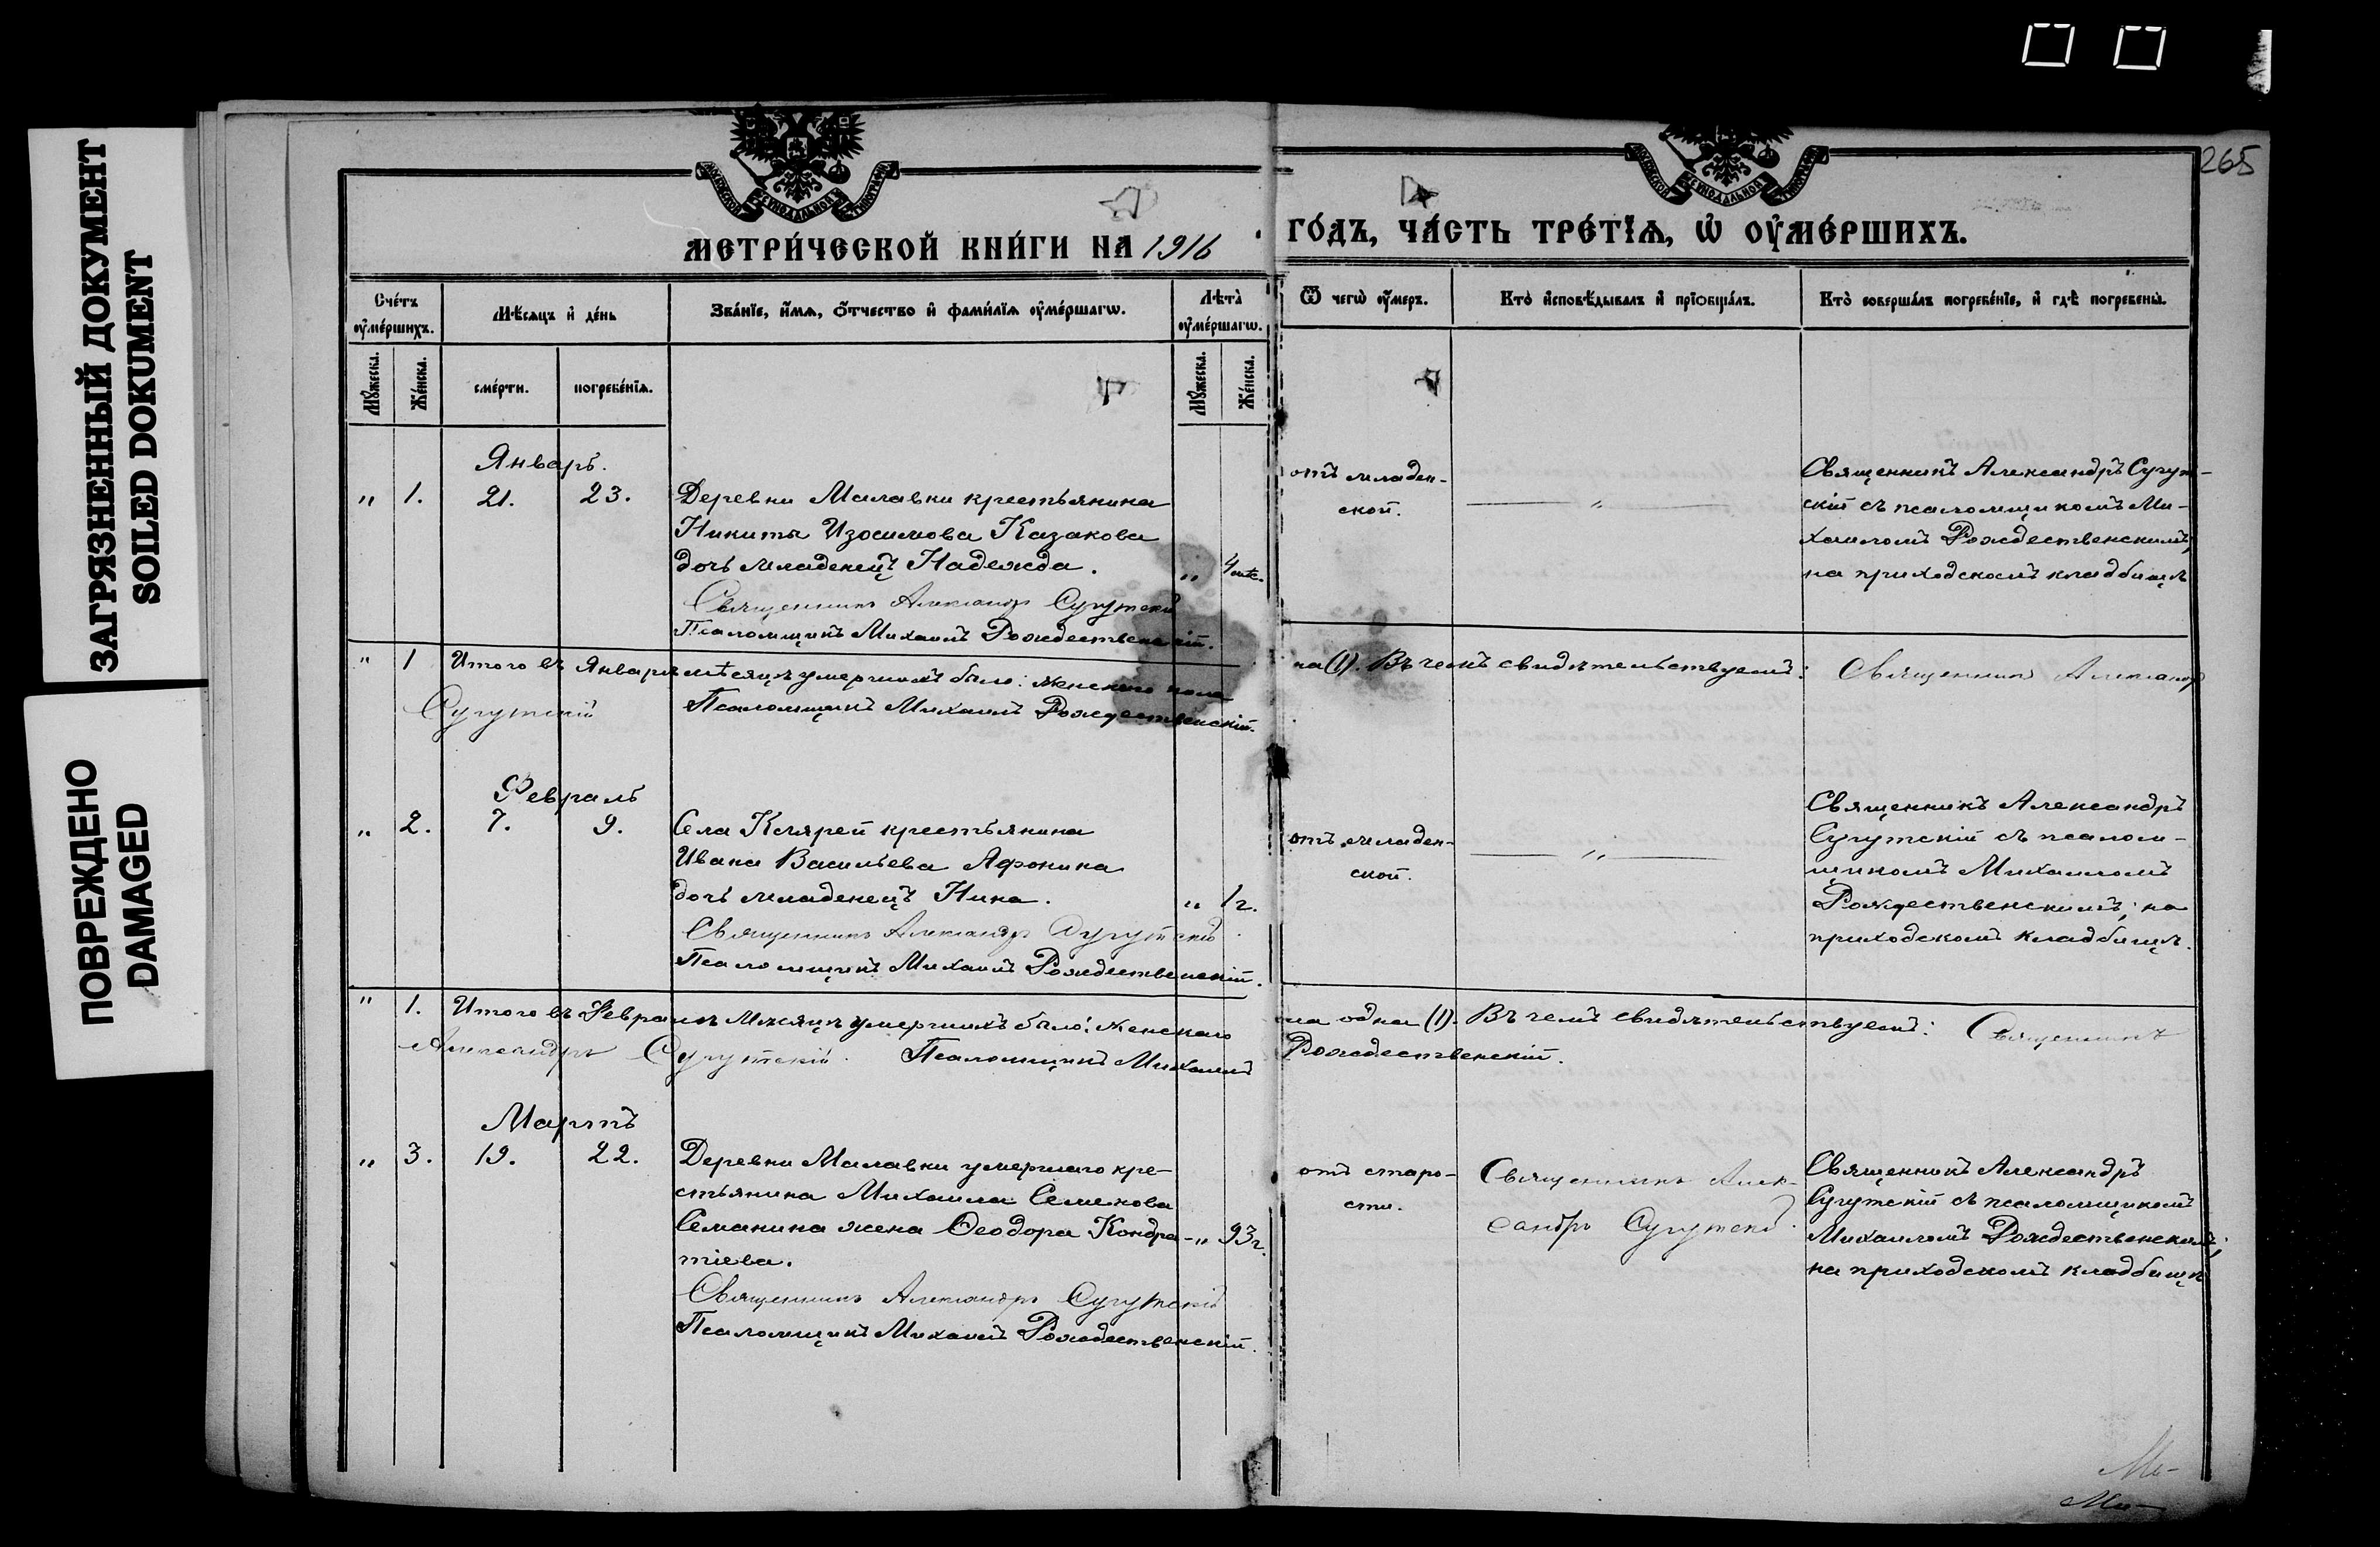 ЗАГРЯЗНЕННЫЙ ДОКУМЕНТ
SOILED DOKUMENT
ПОВРЕЖДЕНО
DAMAGED
265
МЕТРИ́ЧЕСКОЙ КНИ́ГИ НА 1916
ГО́ДЪ, ЧА́СТЬ ТРЕ́ТЇѦ, Ѡ҆ ОУ҆МЕ́РШИХЪ.
Сче́тъ оу҆ме́ршихъ.
Мѣ́сѧцъ и҆ де́нь
Зва́нїе, и҆́мѧ, ѻ҆́тчество и҆ фами́лїѧ оу҆ме́ршагѡ.
Лѣ́та̀ оу҆ме́ршагѡ.
Ѿ чегѡ̀ оу҆́меръ.
Кто̀ и҆сповѣ́дывалъ и҆ прїѻбща́лъ.
Кто̀ соверша́лъ погребе́нїе, и҆ гдѣ̀ погребены̀.
Мꙋ́жеска.
Же́нска.
сме́рти.
погребе́нїѧ.
Мꙋ́жеска.
Же́нска.
Январь.
„ 1. 21. 23. Деревни Малавки крестьянина
Никиты Изосимова Казакова
дочь младенецъ Надежда. „ 4 мѣс.
Священникъ Александръ Сугутскій
Псаломщикъ Михаилъ Рождественскій.
отъ младен-
ской.
„
Священникъ Александръ Сугут-
скій съ псаломщикомъ Ми-
хаиломъ Рождественскимъ,
на приходскомъ кладбищѣ
„ 1 Итого въ Январѣ мѣсяцѣ умершихъ было: женскаго пола
на (1). Въ чемъ свидѣтельствуемъ: Священникъ Александръ
Сугутскій Псаломщикъ Михаилъ Рождественскій.
Февраль
„ 2. 7. 9. Села крестьянина
Ивана Васильева Афонина
дочь младенецъ Нина. „ 1 г.
Священникъ Александръ Сугутскій
Псаломщикъ Михаилъ Рождественскій.
отъ младен-
ской.
„
Священникъ Александръ
Сугутскій съ псалом-
щикомъ Михаиломъ
Рождественскимъ; на
приходскомъ кладбищѣ.
„ 1. Итого въ Февралѣ мѣсяцѣ умершихъ было: женскаго
ла одна (1). Въ чемъ свидѣтельствуемъ: Священникъ
Александръ Сугутскій. Псаломщикъ Михаилъ
Рождественскій.
Мартъ
„ 3. 19. 22. Деревни Малавки умершаго кре-
стьянина Михаила Семенова
Семанина жена Ѳеодора Кондра- „ 93 г.
тіева.
Священникъ Александръ Сугутскій
Псаломщикъ Михаилъ Рождественскій.
отъ старо-
сти.
Священникъ Алек-
сандръ Сугутскій.
Священникъ Александръ
Сугутскій съ псаломщикомъ
Михаиломъ Рождественскимъ;
на приходскомъ кладбищѣ